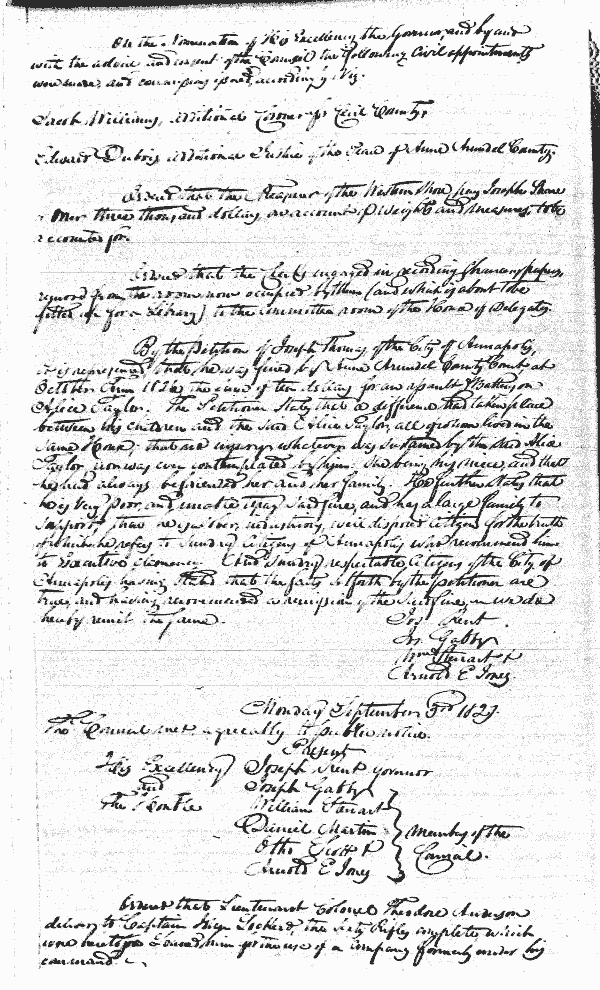 On the Nomination of His Excellency the Governor, and by and
with the advice and consent of the Council the following Civil appointments
were made, and commissions issued, accordingly Viz.
Jacob Williams, additional Coroner for Cecil County,
Edward Dubois additional Justice of the Peace of Anne Arundel County.
Ordered that the Treasurer of the Western Shore pay Joseph
three thousand dollars on account of Weights and Measures, to be
accounted for.
Ordered that the Clerks engaged in recording Chancery papers,
remove from the room now occupied by them (and which is about to be
fitted up for a Library) to the committee room of the House of Delegates.
By the Petition of Joseph Thomas of the City of Annapolis,
it is represented that, he was fined by Anne Arundel County Court at
October Term 1826, the sum of ten dollars for an assault & Battery on
Alice Taylor. The Petitioner States that a difference had taken place
between his children and the said Alice Taylor, all of whom lived in the
same House; that no injury whatever was sustained by the said Alice
Taylor, nor was ever contemplated by him. She being his niece, and that
he had always befriended her and her family. He further states that
he is very poor, and unable to pay said fine, and has a large family to
support, that he is a sober, industrious, well disposed citizen for the truth
of which he refers to Sundry Citizens of Annapolis who recommend him
to executive clemency. And Sundry respectable Citizens of the City of
Annapolis having stated that the facts set forth by the petitioner are
true, and having recommended a remission of the said fine, we do
hereby remit the same.
Jos. Kent.
Js. Gabby
Wm. Stewart
Arnold E Jones
Monday September 3rd 1827.
The Council met agreeably to public notice.
Present
His Excellency Joseph Kent Governor
and Joseph Gabby
The Honble William Stewart
Daniel Martin Members of the
Otho Scott & Council.
Arnold E Jones
Ordered that Lieutenant Colonel Theodore Anderson
deliver to Captain Lockerd, the Sixty Rifles complete which
were heretofore loaned him for the use of a Company formerly under his
command.